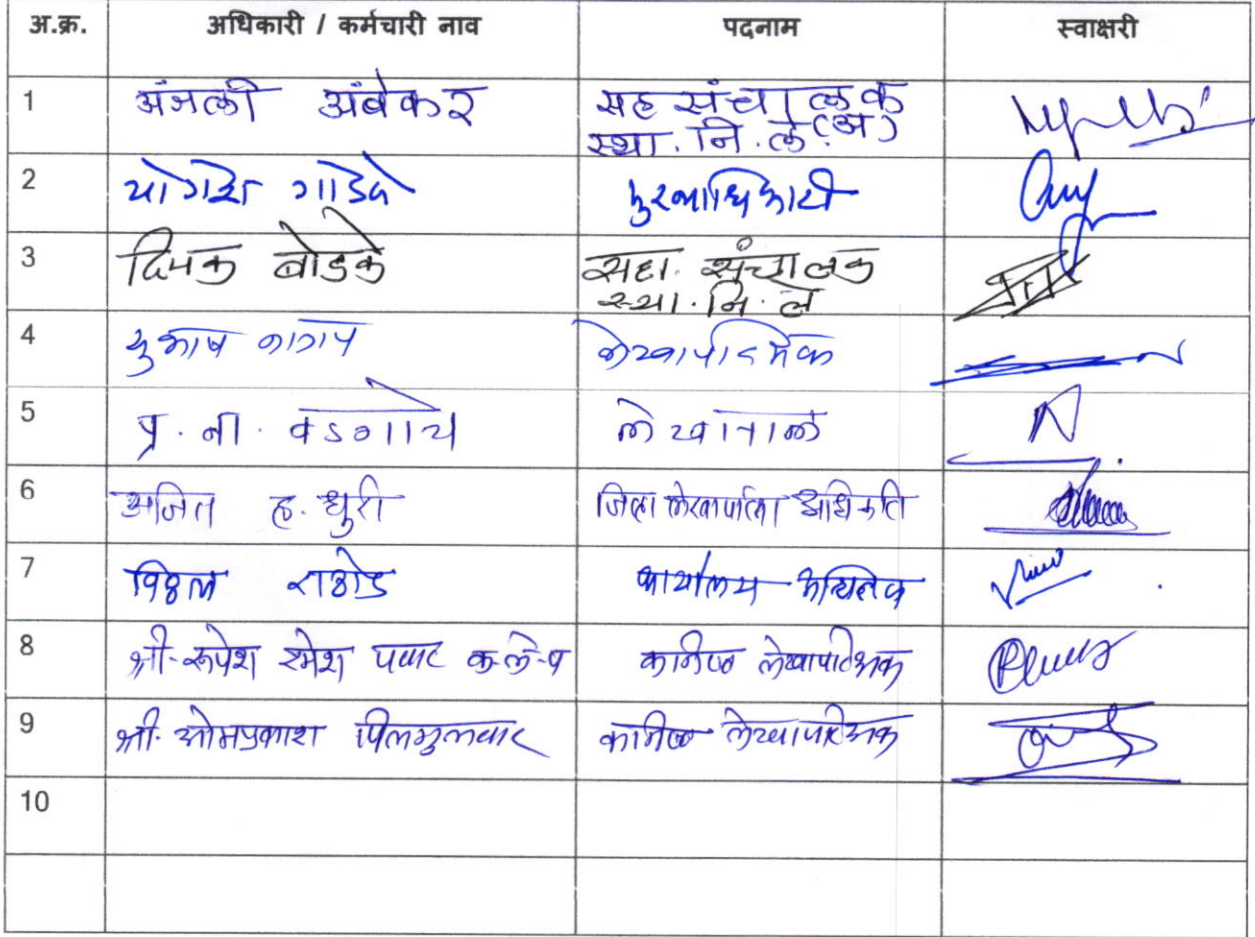 अ.क्र. अधिकारी / कर्मचारी नाव पदनाम स्वाक्षरी
1 अंजली अंबेकर सह संचालक
स्था. नि. ले. (अ)
2 योगेश गोडके
3 दिपक बोडके सहा. संचालक
स्था. नि. ले
4 सुभाष लेखापरिक्षक
5 प्र. ना. वडगाये लेखापाल
6 अजित ह. धुरी जिल्हा अधिकारी
7 विठ्ठल राठोड कार्यालय
8 श्री. रूपेश रमेश पवार क.ले.प कनिष्ठ लेखापरिक्षक
9 श्री. ओमप्रकाश पिलगुलवार कनिष्ठ लेखापरिक्षक
10